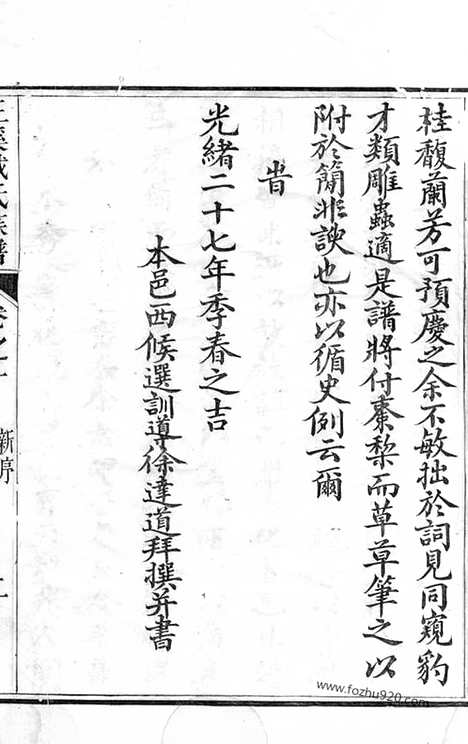 桂馥蘭芳可預慶之余不敏拙於詞見同窺豹
才類雕蟲適是譜將付棗梨而草草筆之以
附於簡非諛也亦以循史例云爾
旹
光緒二十七年季春之吉
本邑西候選訓導徐達道拜撰并書
氏族譜
卷之
新序
www.fozhu920.com